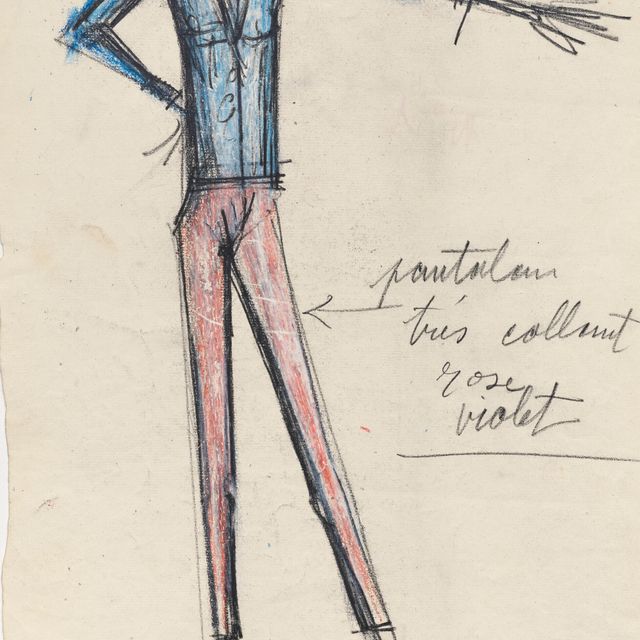 pantalon
très collant
rose
violet